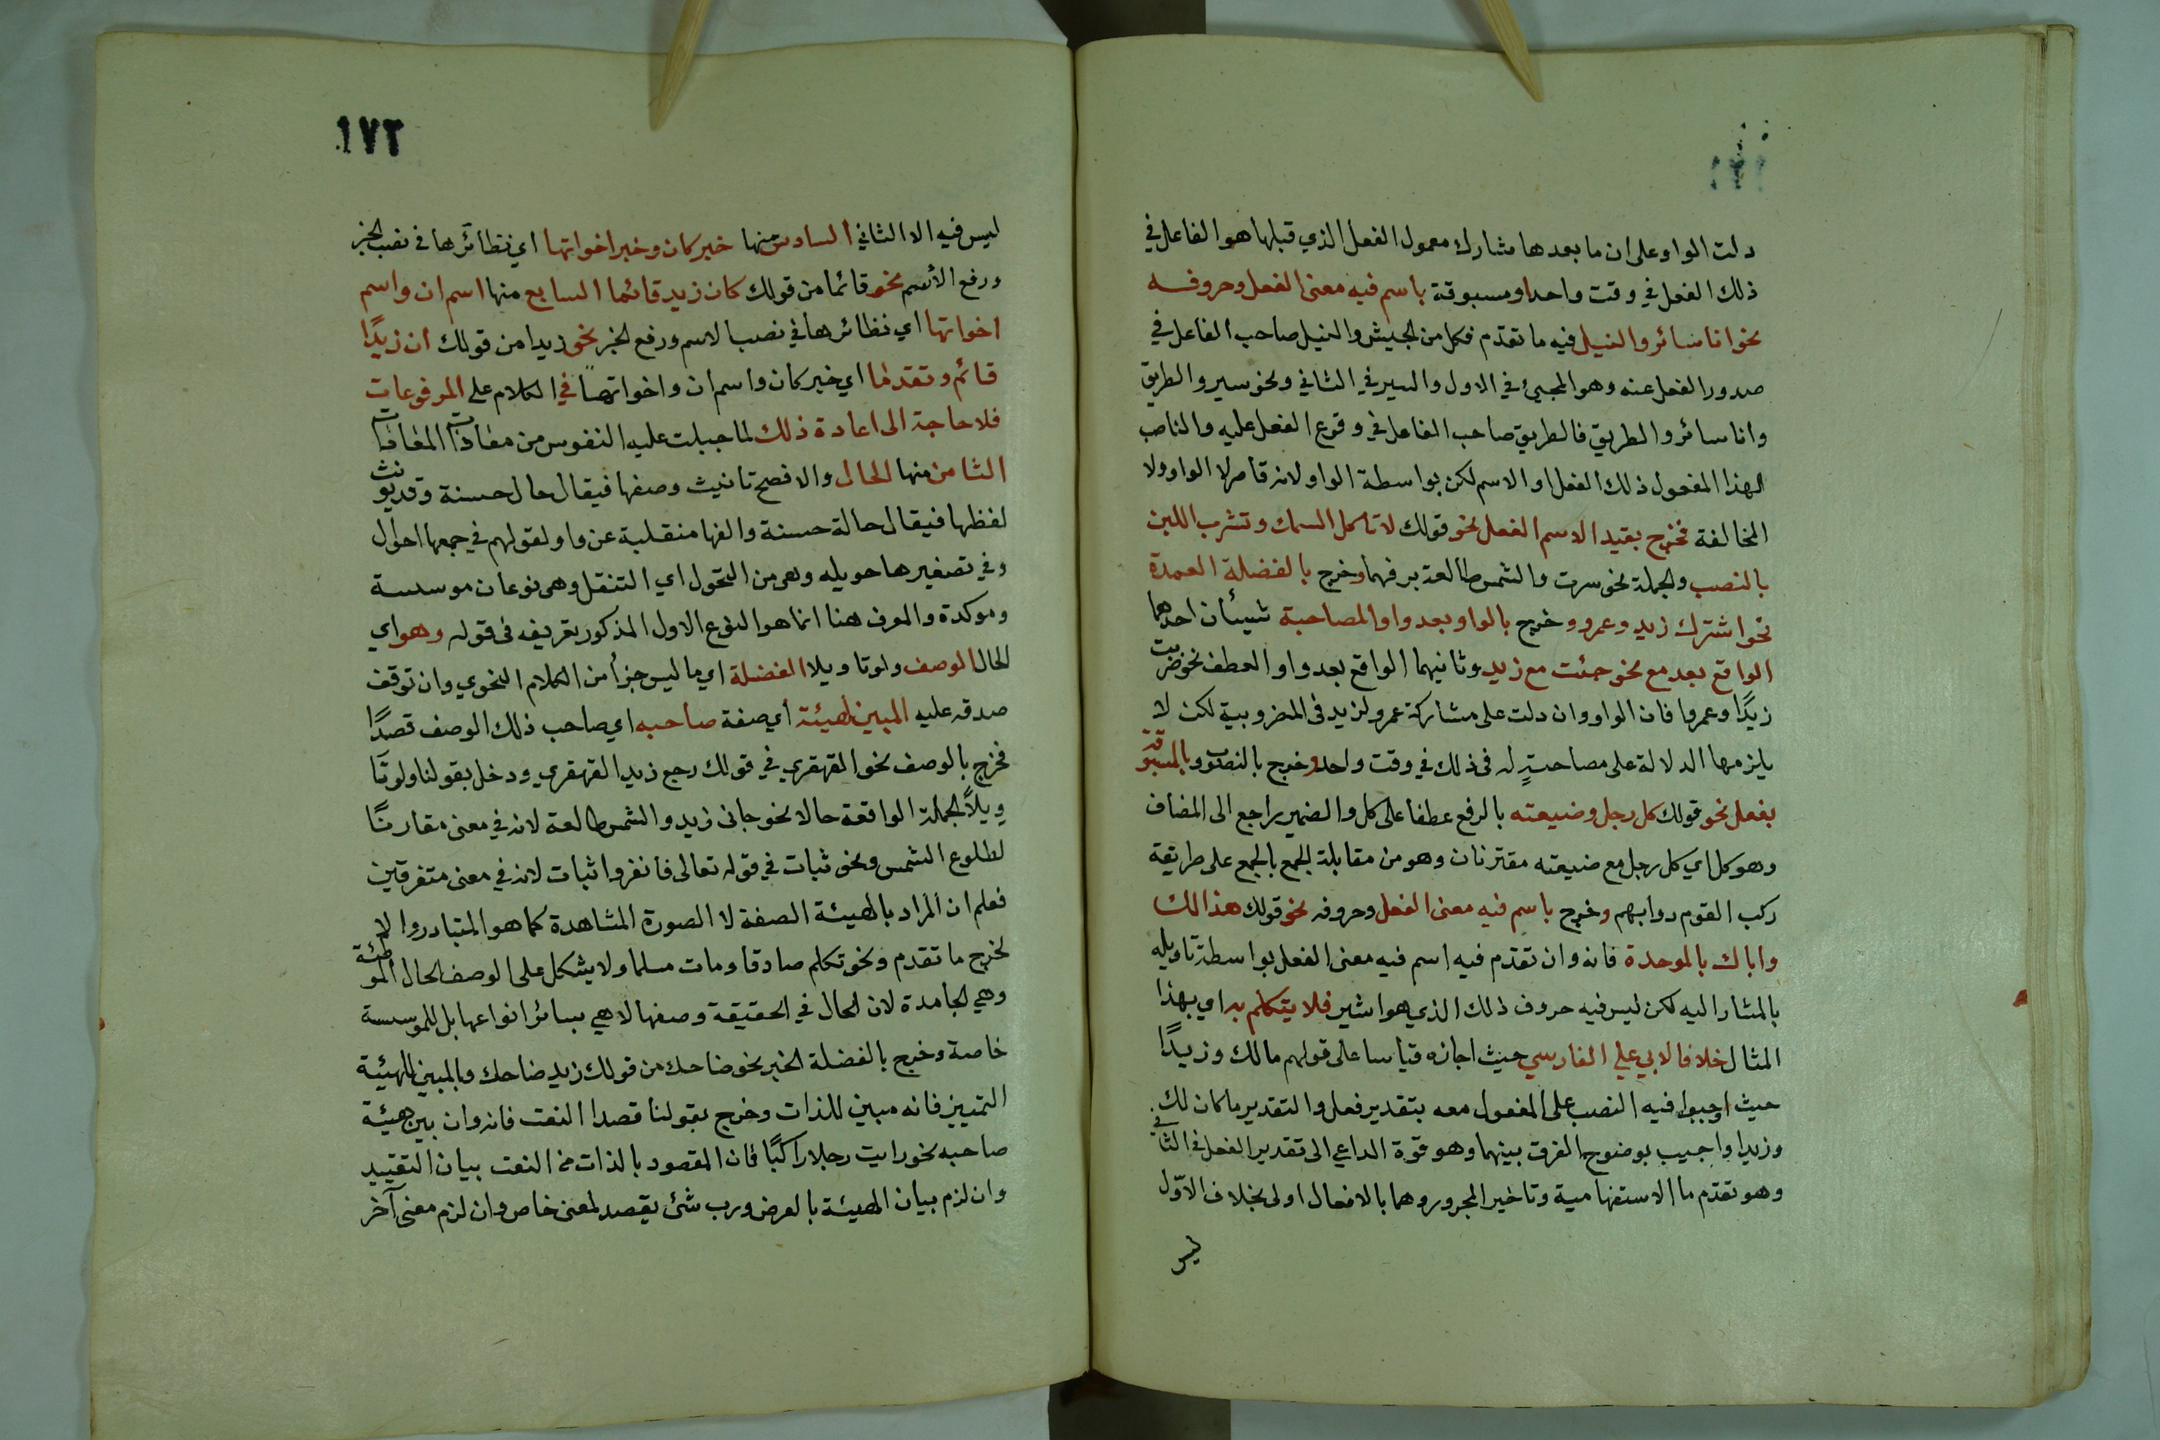 دلت الواو على ان ما بعدها مشارك معمول الفعل الذي قبلها هو الفاعل في
ذلك الفعل في وقت واحد او مسبوقة باسم فيه معنى الفعل وحروفه
نحو انا سائر والنيل فيه ما تقدم فكل من الجيش والنيل صاحب الفاعل في
صدور الفعل عنه وهو المجيئ في الاول والسير في الثاني ونحو سير والطريق
وانا سائر والطريق فالطريق صاحب الفاعل في وقوع الفعل عليه والناصب
لهذا المفعول ذلك الفعل او الاسم لكن بواسطة الواو لانه قاصر لا الواو ولا
الخالفة فخرج بقيد الاسم الفعل نحو قولك لا تاكل السمك وتشرب اللبن
بالنصب والجملة نحو سرت والشمس طالعة برفهما وخرج بالفضلة العمدة
نحو اشترك زيد وعمرو وخرج بالواو بعد واو المصاحبة شيئان احدهما
الواقع بعد مع نحو جئت مع زيد وثانيهما الواقع بعد واو العطف نحو ضربت
زيدًا وعمروا فان الواو وان دلت على مشاركة عمرو لزيد في المضروبية لكن لا
يلزمها الدلالة على مصاحبته له في ذلك في وقت واحد وخرج بالنصب وبالمسبوقة
بفعل نحو قولك كل رجل وضيعته بالرفع عطفا على كل والضمير راجع الى المضاف
وهو كل اي كل رجل مع ضيعته مقترنان وهو من مقابلة الجمع بالجمع على طريقة
ركب القوم دوابهم وخرج باسم فيه معنى الفعل وحروفه نحو قولك هذا لك
واباك بالموحدة فانه وان تقدم فيه اسم فيه معنى الفعل بواسطة تاويله
بالمشار اليه لكن ليس فيه حروف ذلك الذي هو اشير فلا يتكلم به اي بهذا
المثال خلافا لابي علي الفارسي حيث اجازه قياسا على قولهم مالك وزيدًا
حيث اوجبوا فيه النصب على المفعول معه بتقدير فعل والتقدير ما كان لك
وزيدا واجيب بوضوح الفرق بينهما وهو قوة الداعي الى تقدير الفعل في الثاني
وهو تقدم ما الاستفهامية وتاخير المجرور وهما بالافعال اولى بخلاف الاوّل
ليس
١٧٢
ليس فيه الا الثاني السادس منها خبر كان وخبر اخواتها اي نظائرها في نصب الخبر
ورفع الأسم نحو قائما من قولك كان زيد قائما السابع منها اسم ان واسم
اخواتها اي نظائرها في نصب الاسم ورفع الخبر نحو زيدا من قولك ان زيدًا
قائم وتقدما اي خبر كان واسم ان واخواتهما في الكلام على المرفوعات
فلا حاجة الى اعادة ذلك لما جبلت عليه النفوس من معادات المعادات
الثامن منها الحال والافصح تانيث وصفها فيقال حال حسنة وقد يؤنث
لفظها فيقال حالة حسنة والفها منقلبة عن واو لقولهم في جمعها احوال
وفي تصغيرها حويله وهي من التحول اي التنقل وهي نوعان موسسة
وموكدة والمعرف هنا انما هو النوع الاول المذكور تعريفه في قوله وهو اي
الحال الوصف ولو تاويلا الفضلة اي ما ليس جزأ من الكلام النحوي وان توقف
صدقه عليه المبين لهيئة أي صفة صاحبه اي صاحب ذلك الوصف قصدًا
فخرج بالوصف نحو القهقري في قولك رجع زيد القهقري ودخل بقولنا ولو تا
ويلاً الجملة الواقعة حالا نحو جانى زيد والشمس طالعة لانه في معنى مقارنًا
لطلوع الشمس ونحو ثبات في قوله تعالى فانفروا ثبات لانه في معنى متفرقين
فعلم ان المراد بالهيئة الصفة لا الصورة المشاهدة كما هو المتبادر والا
لخرج ما تقدم ونحو تكلم صادقا ومات مسلما ولا يشكل على الوصف الحال الموطئة
وهي الجامدة لان الحال في الحقيقة وصفها لا هي بسائر انواعها بل للموسسة
خاصة وخرج بالفضلة الخبر نحو ضاحك من قولك زيد ضاحك وبالمبين للهيئة
التمييز فانه مبين للذات وخرج بقولنا قصدا النعت فانه وان بين هيئة
صاحبه نحو رايت رجلا راكبًا فان المقصود بالذات من النعت بيان التقييد
وان لزم بيان الهيئة بالعرض ورب شئ يقصد لمعنى خاص وان لزم معنى آخر